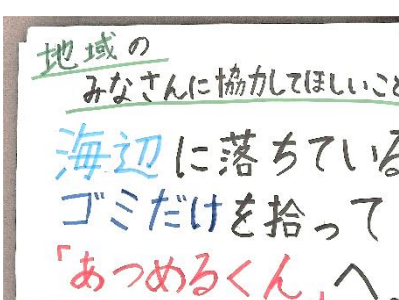 地域の
みなさんに協力してほしいこと
海辺に落ちている
ゴミだけを拾って
「あつめるくん」へ。